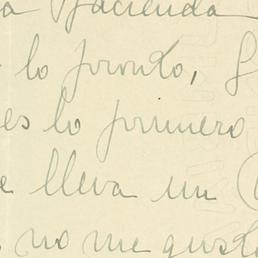 a Hacienda
lo pronto,
es lo primero
e lleva un
no me gusta